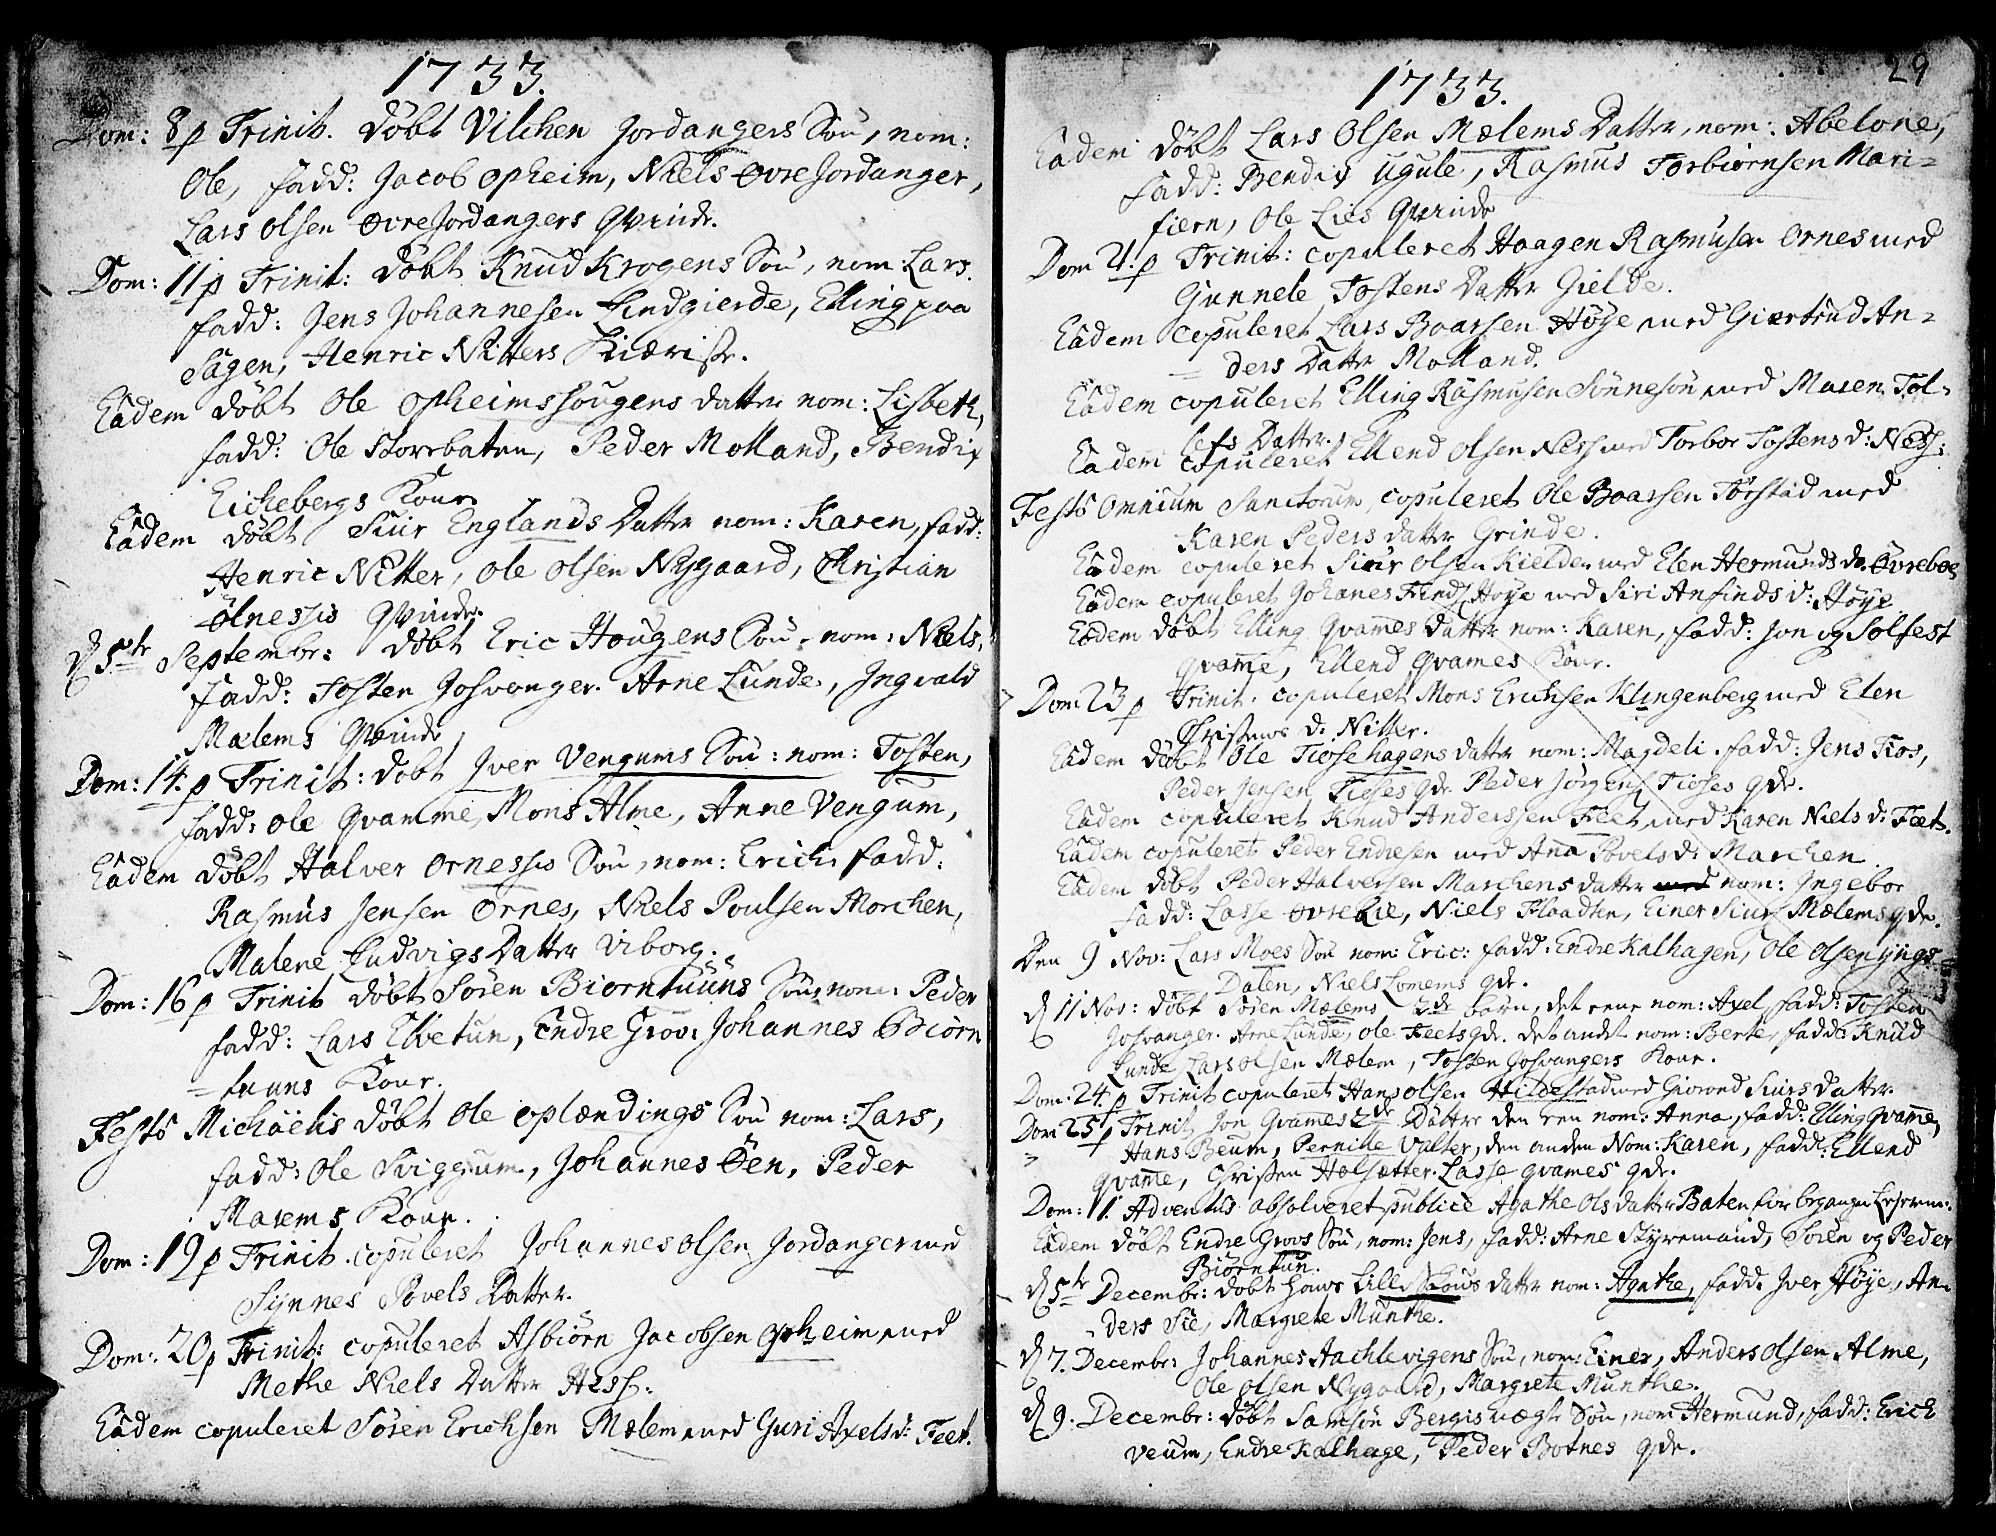 1733.
Dom: 8 p Trinit. döbt Vilchen Jordangers Sön, nom:
Ole, fadd: Jacob Opheim, Niels Øvre Jordanger,
Lars Olsen Øvre Jordangers Qvinde.
Dom: 11 p Trinit: döbt Knud Krogens Sön, nom: Lars.
fadd: Jens Johannesen Lindgierde, Elling paa
Hagen, Henric Nitters
Eadem döbt Ole Opheimshougens datter nom: Lisbeth,
fadd: Ole Storrbaten, Peder Molland, Bendix
Eichebergs Kone
Eadem döbt Siur Englands Datter nom: Karen, fadd:
Henric Nitter, Ole Olsen Nygaard, Christian
Ølnesses Qvinde.
d 5te Septembr: döbt Eric Hougens Sön, nom: Niels,
fadd: Tosten Josvanger. Arne Lunde, Ingvald
Mælems Qvinde
Dom: 14. p Trinit: döbt Jver Vengums Sön: nom: Tosten,
fadd: Ole Qvamme, Mons Alme, Anne Vengum,
Eadem döbt Halver Ornesses Sön, nom: Erich, fadd:
Rasmus Jensen Ornes, Niels Poulsen Morchen,
Malene Ludvigs Datter Viborg.
Dom: 16 p Trinit döbt Sören Biorntuuns Sön, nom: Peder
fadd: Lars Elvetun, Endre Grov: Johannes Biörn
=tuuns Kone.
Festo Michaelis döbt Ole Oplændings Sön nom: Lars,
fadd: Ole Sviggum, Johannes Øen, Peder
Marems Kone.
Dom: 19 p Trinit. copuleret Johannes Olsen Jordanger med
Synnes Povels Datter.
Dom: 20 p Trinit: copuleret Asbiörn Jacobsen Opheim med
Methe Niels Datter Hess:
Eadem copuleret Sören Erichsen Mælem med Guri Axels d: Feet.
1733.
29
Eadem döbt Lars Olsen Mælems Datter, nom: Abelone,
fadd: Bendix Ugule, Rasmus Torbiörnsen Mari=
fiern, Ole Lies Qvinde
Dom 21. p Trinit: copuleret Haagen Rasmusen Ornes med
Gunnele Tostens Datter Gielde.
Eadem copuleret Lars Boarsen Høye med Giertrud An=
=ders Datter Molland.
Eadem copuleret Elling Rasmusen Sönneson med Maren Tol=
lefs Datter.
Eadem copuleret Ellend Olsen Ness med Torbor Tostens d: Ness:
Festo Omnium Sanctorum, copuleret Ole Boarsen Törstad med
Karen Peders datter Grinde.
Eadem copuleret Siur Olsen Kielden med Elen Hermunds d. Øvreboe
Eadem copuleret Johanes Finds Høye med Siri Anfinds d: Høye
Eodem döbt Elling Qvames datter nom: Karen, fadd: Jon og Solfest
Qvame, Ellend Qvames Kone.
Dom 23 p Trinit. copuleret Mons Erichsen Klingenberg med Elen
Christens d. Nitter.
Eadem döbt Ole Tiosehagens datter nom: Magdeli. fadd: Jens Tios,
Peder Jensen Tioses Qde. Peder Jörgens Tioses qde.
Eadem copuleret Knud Anderssen Feet med Karen Niels d: Feet.
Eadem copuleret Peder Endresen med Ana Povels d: Marchen.
Eadem döbt Peder Halversen Marchens datter nom: Ingebor
fadd: Lasse Øvrelie, Niels Flaadten, Einer Siurs Mælems qde.
Den 9 Nov: Lars Moes Sön nom: Eric: fadd: Endre Kalhagen, Ole Olsen yngs=
Dalen, Niels Lomems qde.
d 11 Nov: döbt Sören Mælems 2de börn, det eene nom: Axel, fadd: Tosten
Josvanger. Arne Lunde, Ole Feets qde. det andet nom: Berte, fadd: Knud
Lunde Lars Olsen Mælem, Tosten Josvangers Kone.
Dom. 24 p Trinit copuleret Hans Olsen Hildestad med Giorond Siurs datter.
Dom 25 p Trinit Jon Qvames 2de Döttre den een nom: Anna, fadd: Elling Qvame,
Hans Beum, Pernille Valter, den anden Nom: Karen, fadd: Ellend
Qvame, Christen Holsætter. Lasse Qvames qde.
Dom: 1. Adventus absolveret publice Agathe Ols datter Baten for begangen
Eadem döbt Endre Grovs Sön, nom: Jens, fadd: Arne Styremand, Sören og Peder
Biörntun.
d 5te Decembr: döbt Hans Lille datter nom: Agathe, fadd: Jver Høye, An=
ders Sie, Margrete Munthe.
d 7. Decembr: Johannes Aachlevigens Sön, nom: Einer, Anders Olsen Alme,
Ole Olsen Nygaard, Margrete Munthe.
d 9. Decembr: döbt Samson Bergis Sön, nom Hermund, fadd: Erich
Veum, Endre Kalhage, Peder Botnes qde.